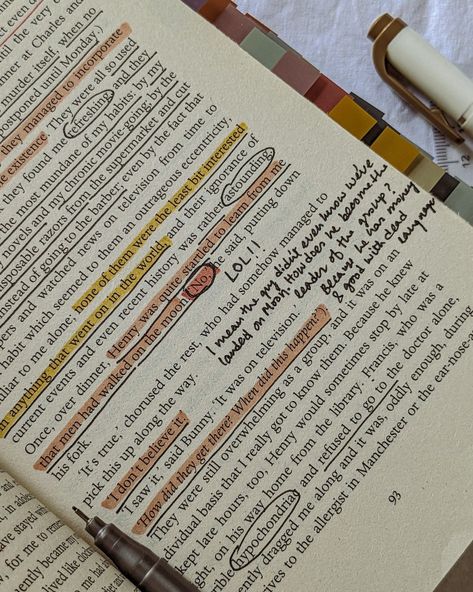 even
till the very
dinner at Charles and
murder itself, when no
postponed until Monday,
they managed to incorporate
existence. They were all so used
they found me refreshing and they
the most mundane of my habits: by my
novels and my chronic movie-going; by the
disposable razors from the supermarket and cut
instead of going to the barber; even by the fact that
papers and watched news on television from time to
habit which seemed to them an outrageous eccentricity,
liar to me alone; none of them were the least bit interested
in anything that went on in the world, and their ignorance of
current events and even recent history was rather astounding.
Once, over dinner, Henry was quite startled to learn from me
that men had walked on the moon. 'No,' he said, putting down
his fork.
'It's true,' chorused the rest, who had somehow managed to
pick this up along the way.
'I don't believe it.'
'I saw it,' said Bunny. 'It was on television.'
'How did they get there? When did this happen?'
They were still overwhelming as a group, and it was on an
individual basis that I really got to know them. Because he knew
kept late hours, too, Henry would sometimes stop by late at
night, on his way home from the library. Francis, who was a
terrible hypochondriac and refused to go to the doctor alone,
frequently dragged me along and it was, oddly enough, during
drives to the allergist in Manchester or the ear-nose-a
93
LOL!!
I mean the guy didn't even know we've
landed on Moon. How does he become the
leader of the group?
Because he has money
& good with dead
language